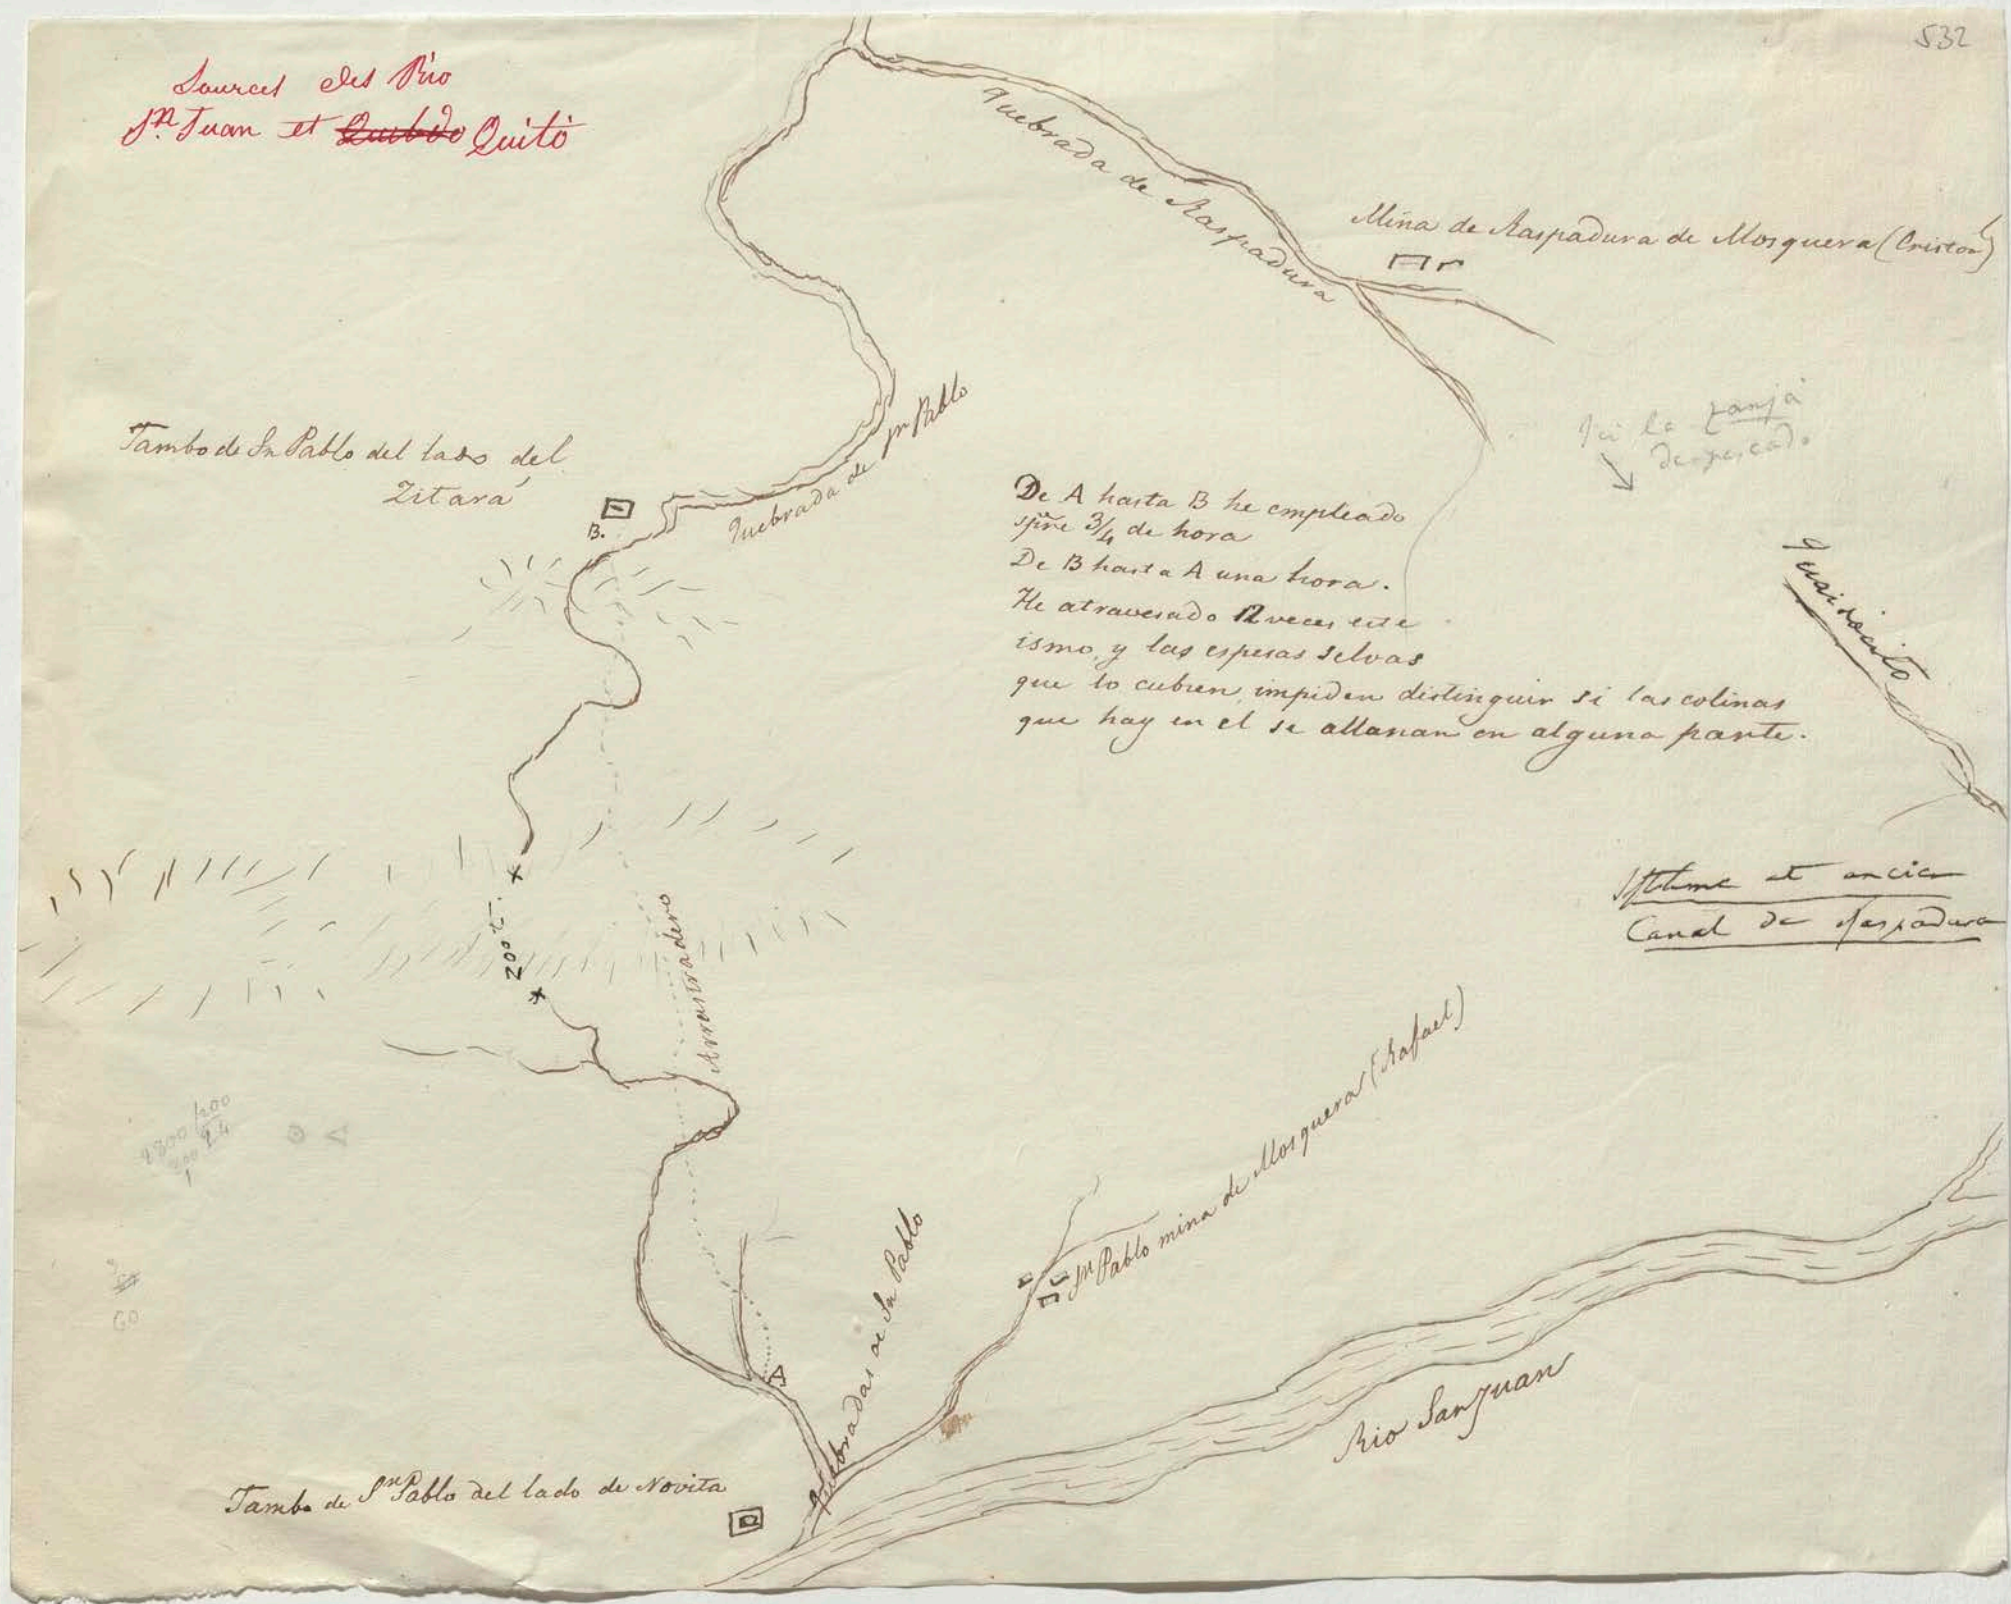 532
Sources des Rio
Sn. Juan et Quibdo Quitò
Quebrada de Raspadura
Mina de Raspadura de Mosquera (Cristoal)
Tambo de Sn Pablo del lado del
Zitará
B.
Quebrada de Sn Pablo
Ici la zanja
De A hasta B he empleado
spre 3/4 de hora
De B hasta A una hora.
He atravesado 12 veces este
ismo, y las espesas selvas
que lo cubren impiden distinguir si las colinas
que hay en el se allanan en alguna parte.
200 t.
Arrastradero
Isthme et ancien
Canal de Raspadura
2800/200
60
Sn Pablo mina de Mosquera (Rafael)
A
Quebradas de Sn Pablo
Rio San Juan
Tambo de Sn Pablo del lado de Novita